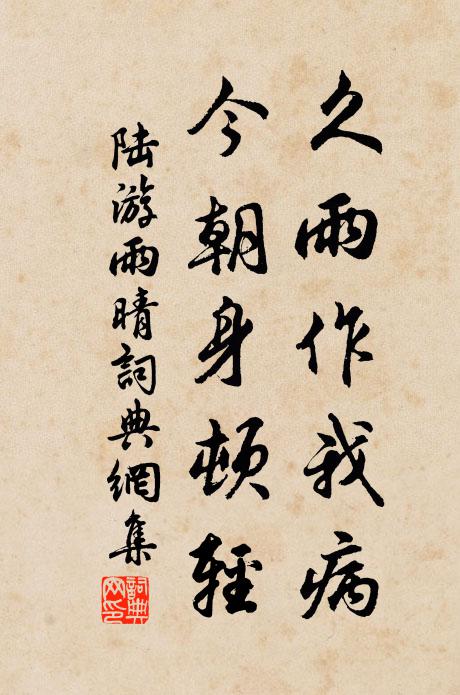 久雨作我病
今朝身頓輕
陸游雨晴詞典網集
詞典網印